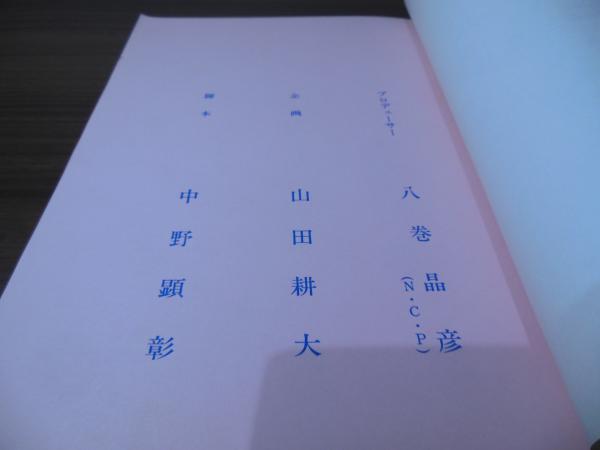 プロデューサー 八巻晶彦
(N・C・P)
企画 山田耕大
脚本 中野顕彰